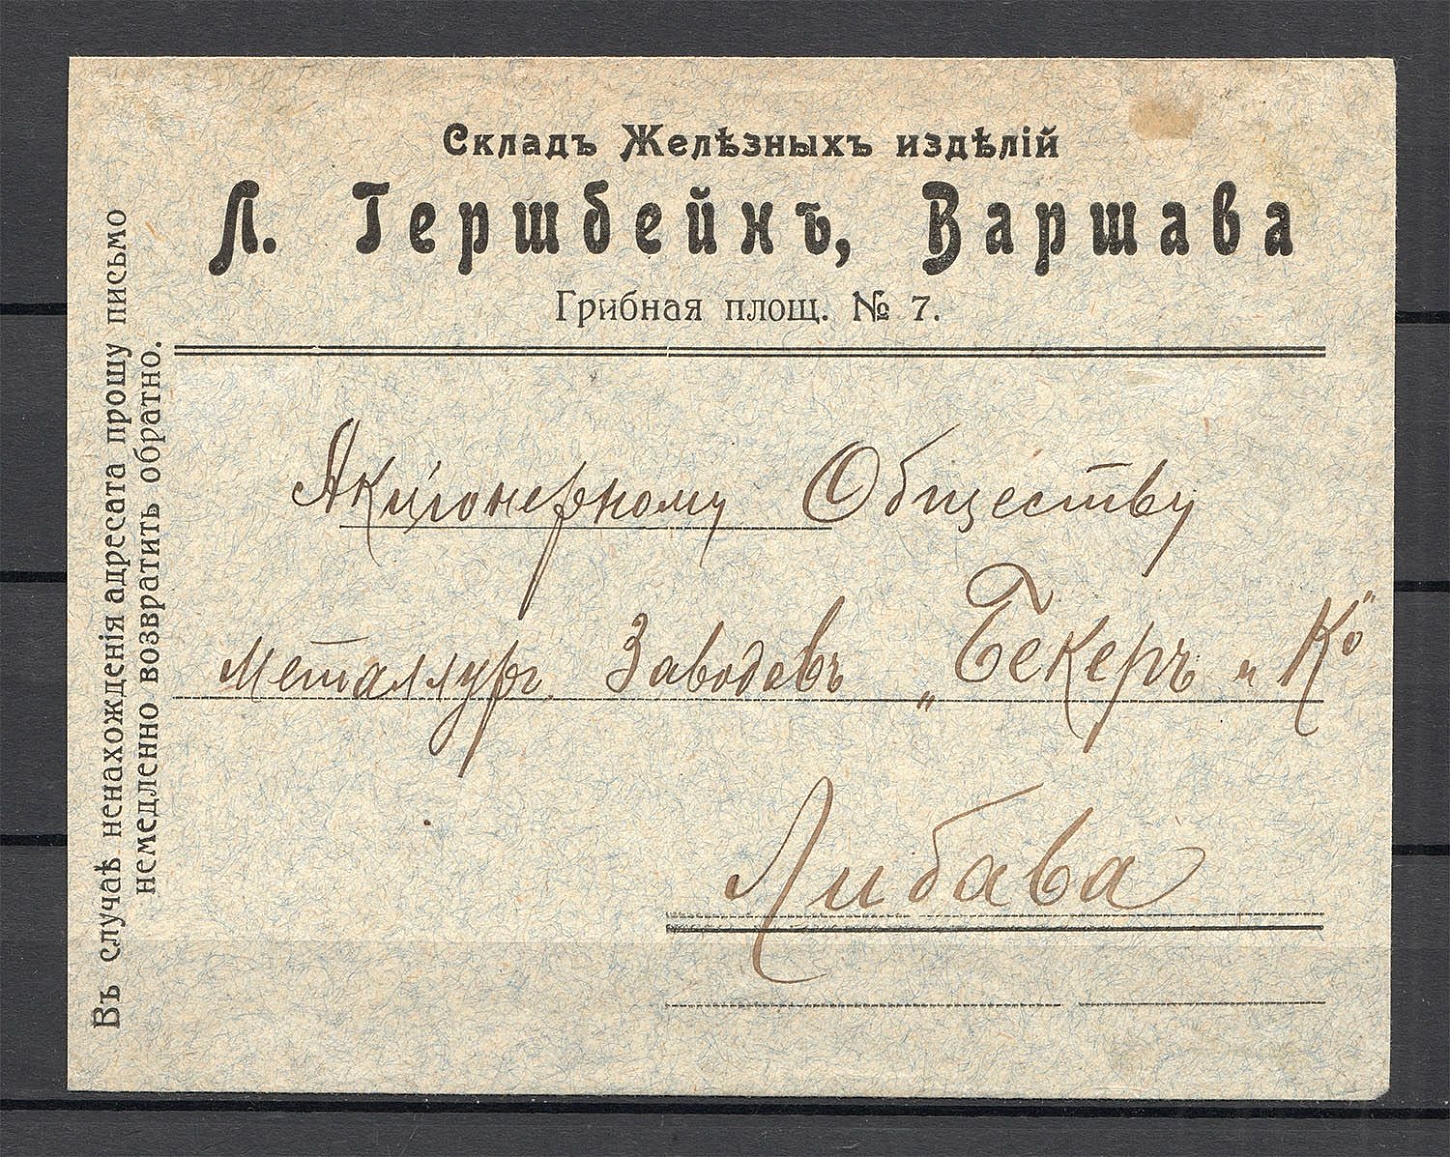 Складъ Желѣзныхъ издѣлій
Л. Гершбейнъ, Варшава
Грибная площ. № 7.
Въ случаѣ ненахожденія адресата прошу письмо
немедленно возвратить обратно.
Акціонерному Обществу
Металлург. Заводовъ „Бекеръ и Ко"
Либава